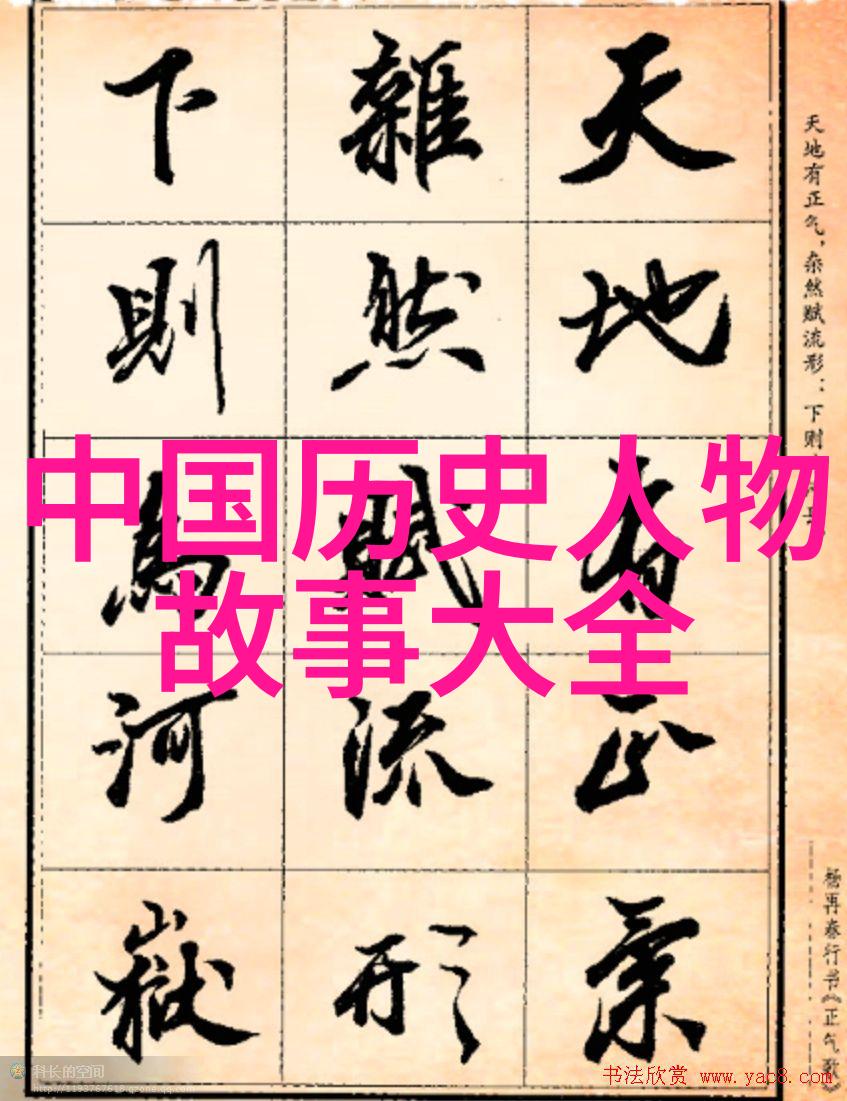 天地有正气，杂然赋流形；下则
天地有正氣
雜然賦流形
下則為河嶽
中国历史人物
故事大全
杨再春行书《正气歌》
科长的空间
http://1193767618.qzone.qq.com
书法欣赏 www.yac8.com